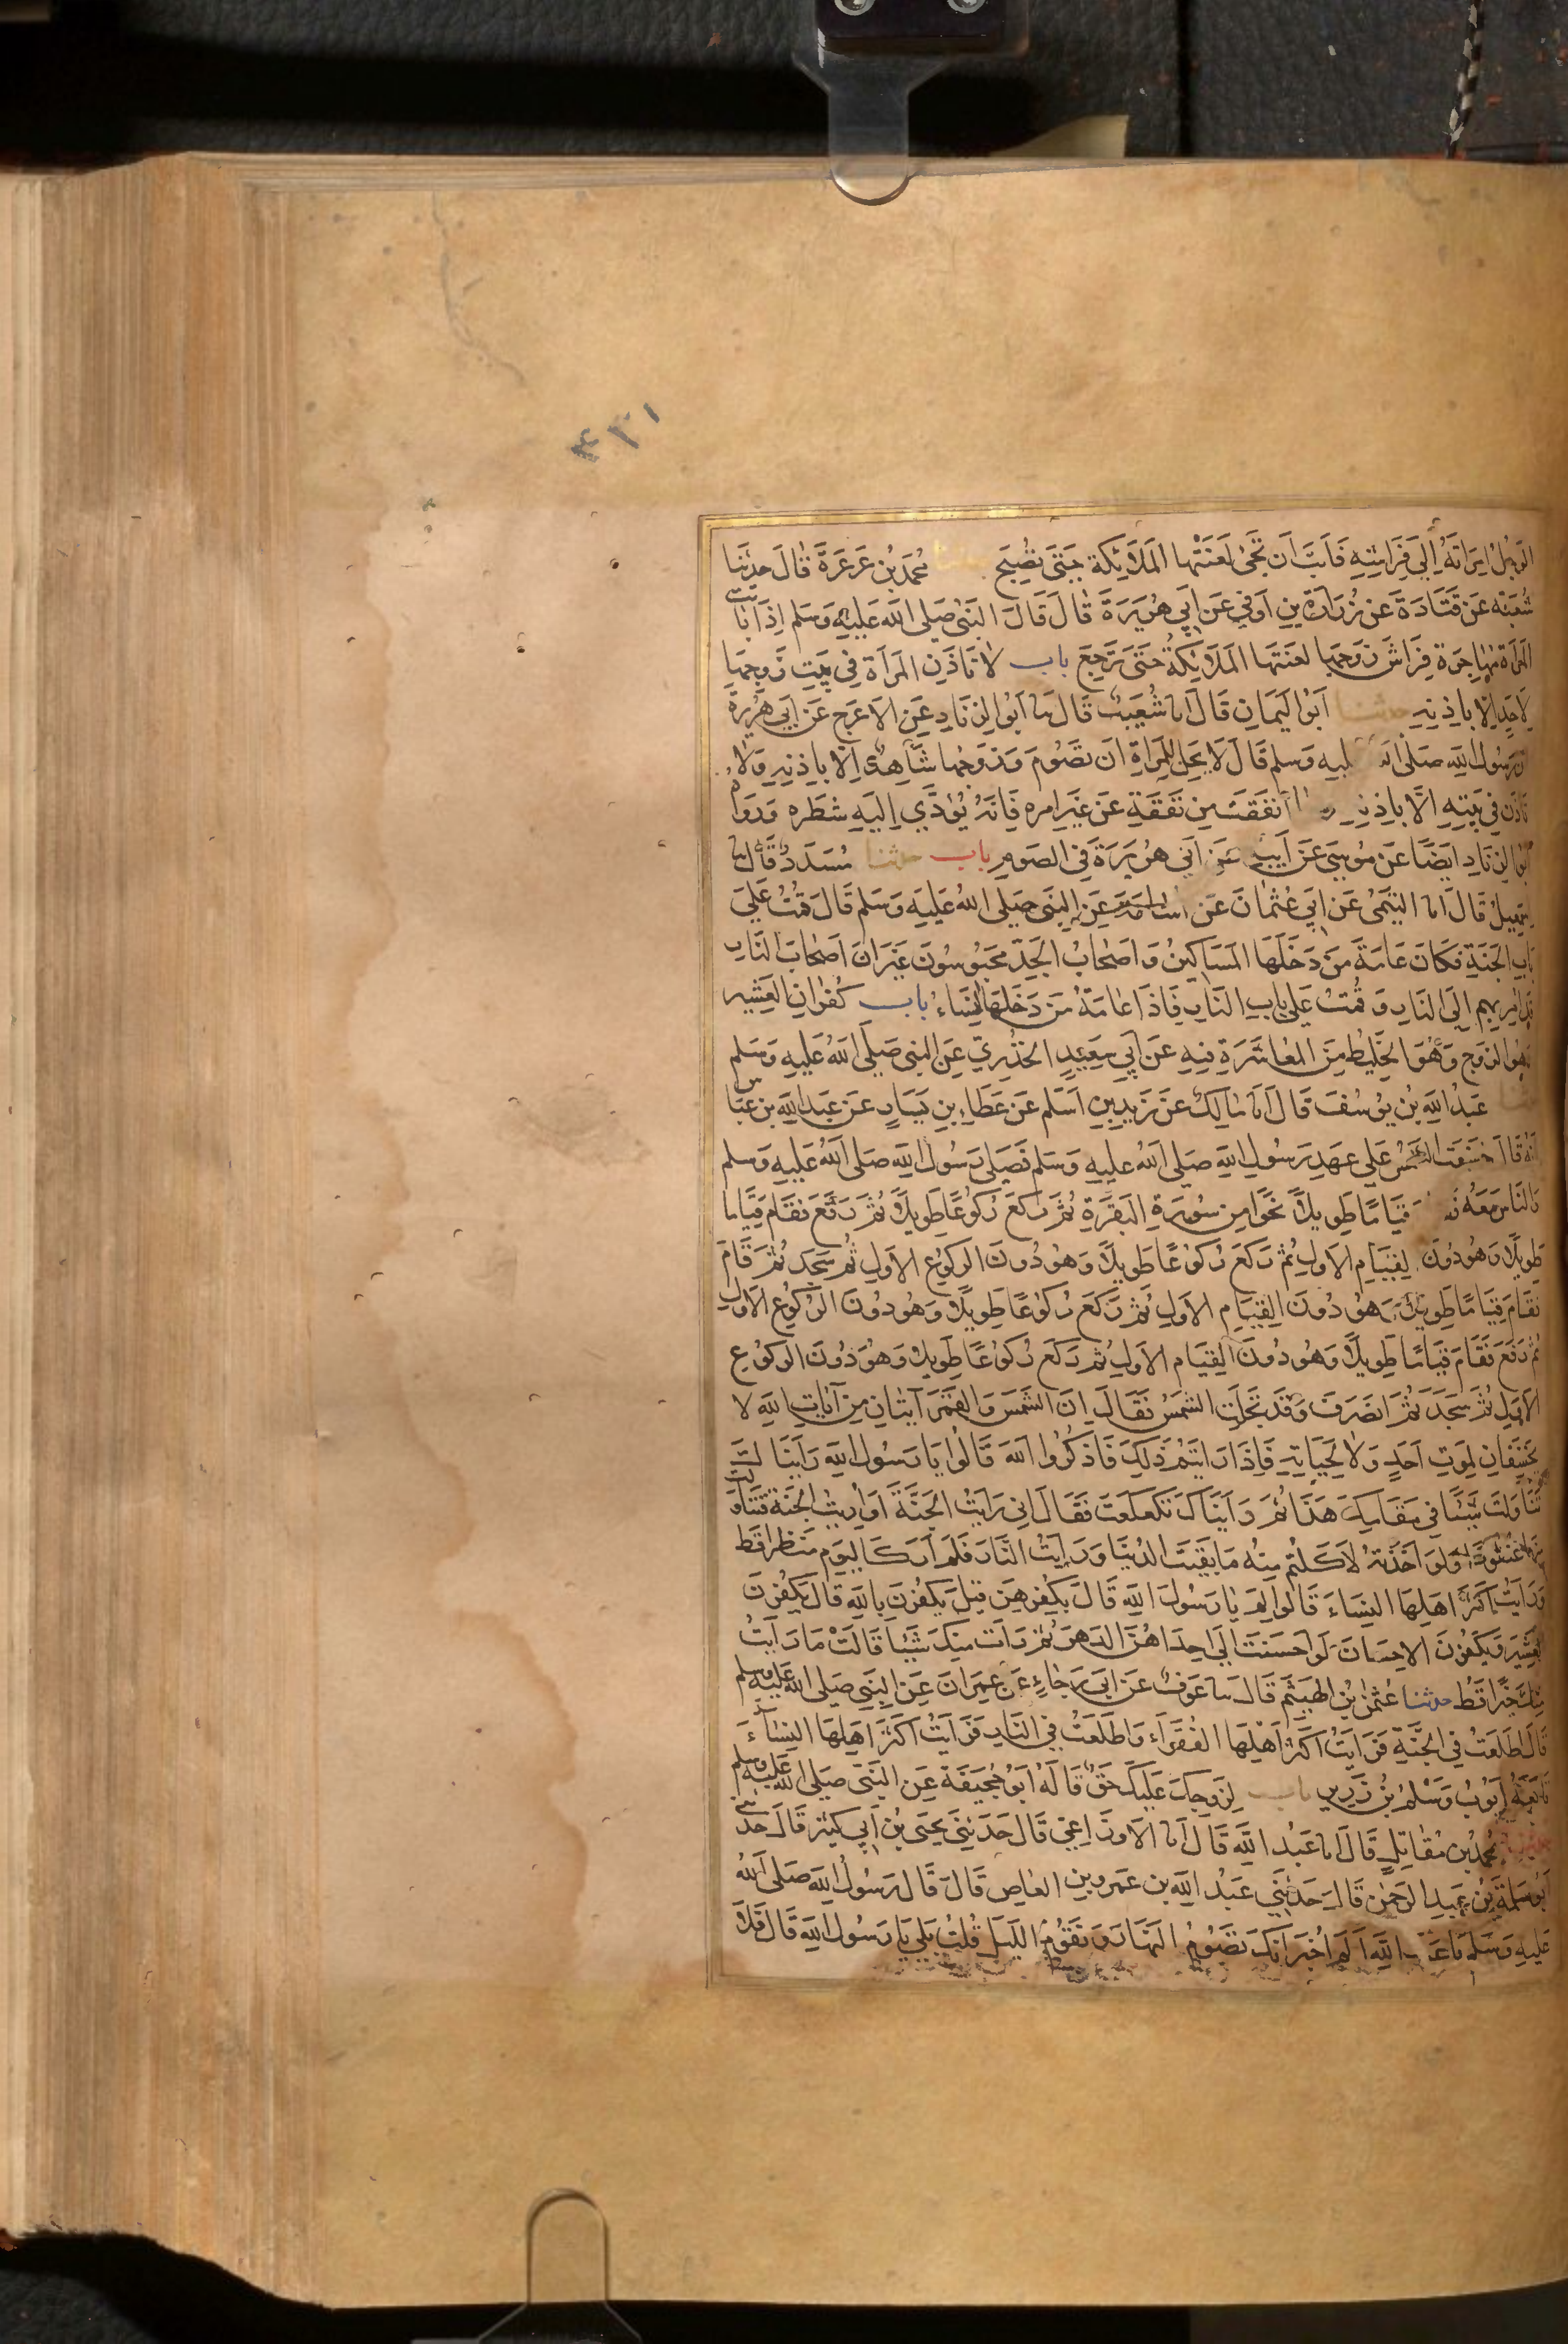 ٤٢١
الرجل امراته الى فراشه فابت ان تجئ لعنتها الملائكة حتى تصبح محمد بن عرعرة قال حدثنا
شعبة عن قتادة عن زرارة بن اوفى عن ابي هريرة قال قال النبي صلى الله عليه وسلم اذا باتت
المراة مهاجرة فراش زوجها لعنتها الملائكة حتى ترجع باب لا تاذن المراة في بيت زوجها
لاحد الا باذنه حدثنا ابو اليمان قال انا شعيب قال نا ابو الزناد عن الاعرج عن ابي هريرة
ان رسول الله صلى الله عليه وسلم قال لا يحل للمراة ان تصوم وزوجها شاهد الا باذنه ولا
تاذن في بيته الا باذنه وما انفقت من نفقة عن غير امره فانه يؤدي اليه شطره ورواه
ابو الزناد ايضا عن موسى عن ابيه عن ابي هريرة في الصوم باب حدثنا مسدد قال نا
اسمعيل قال انا التيمي عن ابي عثمان عن اسامة عن النبي صلى الله عليه وسلم قال قمت على
باب الجنة فكان عامة من دخلها المساكين واصحاب الجد محبوسون غير ان اصحاب النار
قد امر بهم الى النار وقمت على باب النار فاذا عامة من دخلها النساء باب كفران العشير
وهو الزوج وهو الخليط من المعاشرة فيه عن ابي سعيد الخدري عن النبي صلى الله عليه وسلم
حدثنا عبد الله بن يوسف قال انا مالك عن زيد بن اسلم عن عطاء بن يسار عن عبد الله بن عباس
انه قال خسفت الشمس على عهد رسول الله صلى الله عليه وسلم فصلى رسول الله صلى الله عليه وسلم
والناس معه قياما طويلا نحوا من سورة البقرة ثم ركع ركوعا طويلا ثم رفع فقام قياما
طويلا وهو دون القيام الاول ثم ركع ركوعا طويلا وهو دون الركوع الاول ثم سجد ثم قام
فقام قياما طويلا وهو دون القيام الاول ثم ركع ركوعا طويلا وهو دون الركوع الاول
ثم رفع فقام قياما طويلا وهو دون القيام الاول ثم ركع ركوعا طويلا وهو دون الركوع
الاول ثم سجد ثم انصرف وقد تجلت الشمس فقال ان الشمس والقمر آيتان من آيات الله لا
يخسفان لموت احد ولا لحياته فاذا رايتم ذلك فاذكروا الله قالوا يا رسول الله رايناك
تناولت شيئا في مقامك هذا ثم رايناك تكعكعت فقال اني رايت الجنة او اريت الجنة فتناولت
منها عنقودا ولو اخذته لاكلتم منه ما بقيت الدنيا ورايت النار فلم ار كاليوم منظرا قط
ورايت اكثر اهلها النساء قالوا لم يا رسول الله قال بكفرهن قيل يكفرن بالله قال يكفرن
العشير ويكفرن الاحسان لو احسنت الى احداهن الدهر ثم رات منك شيئا قالت ما رايت
منك خيرا قط حدثنا عثمن بن الهيثم قال نا عوف عن ابي رجاء عن عمران عن النبي صلى الله عليه وسلم
قال اطلعت في الجنة فرايت اكثر اهلها الفقراء واطلعت في النار فرايت اكثر اهلها النساء
تابعه ايوب وسلم بن زرير باب لزوجك عليك حق قاله ابو جحيفة عن النبي صلى الله عليه وسلم
حدثنا محمد بن مقاتل قال انا عبد الله قال انا الاوزاعي قال حدثني يحيى بن ابي كثير قال حدثني
ابو سلمة بن عبد الرحمن قال حدثني عبد الله بن عمرو بن العاص قال قال رسول الله صلى الله
عليه وسلم يا عبد الله الم اخبر انك تصوم النهار وتقوم الليل قلت بلى يا رسول الله قال فلا